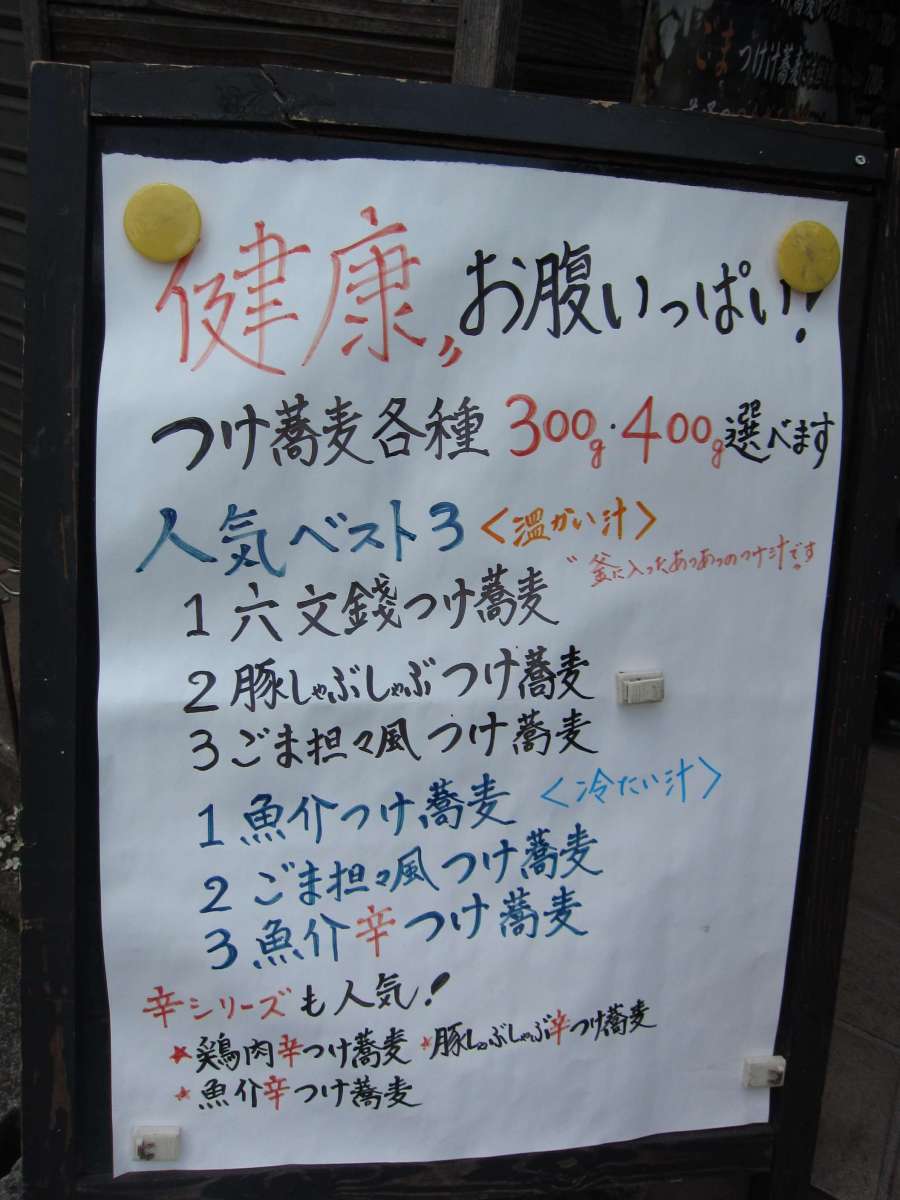 ごま
つけ汁蕎麦
健康〃お腹いっぱい!
つけ蕎麦各種 300g・400g選べます
人気ベスト3 <温かい汁>
〃釜に入ったあつあつのつけ汁です。
1 六文銭つけ蕎麦
2 豚しゃぶしゃぶつけ蕎麦
3 ごま担々風つけ蕎麦
1 魚介つけ蕎麦 <冷たい汁>
2 ごま担々風つけ蕎麦
3 魚介辛つけ蕎麦
辛シリーズも人気!
★鶏肉辛つけ蕎麦 ★豚しゃぶしゃぶ辛つけ蕎麦
★魚介辛つけ蕎麦